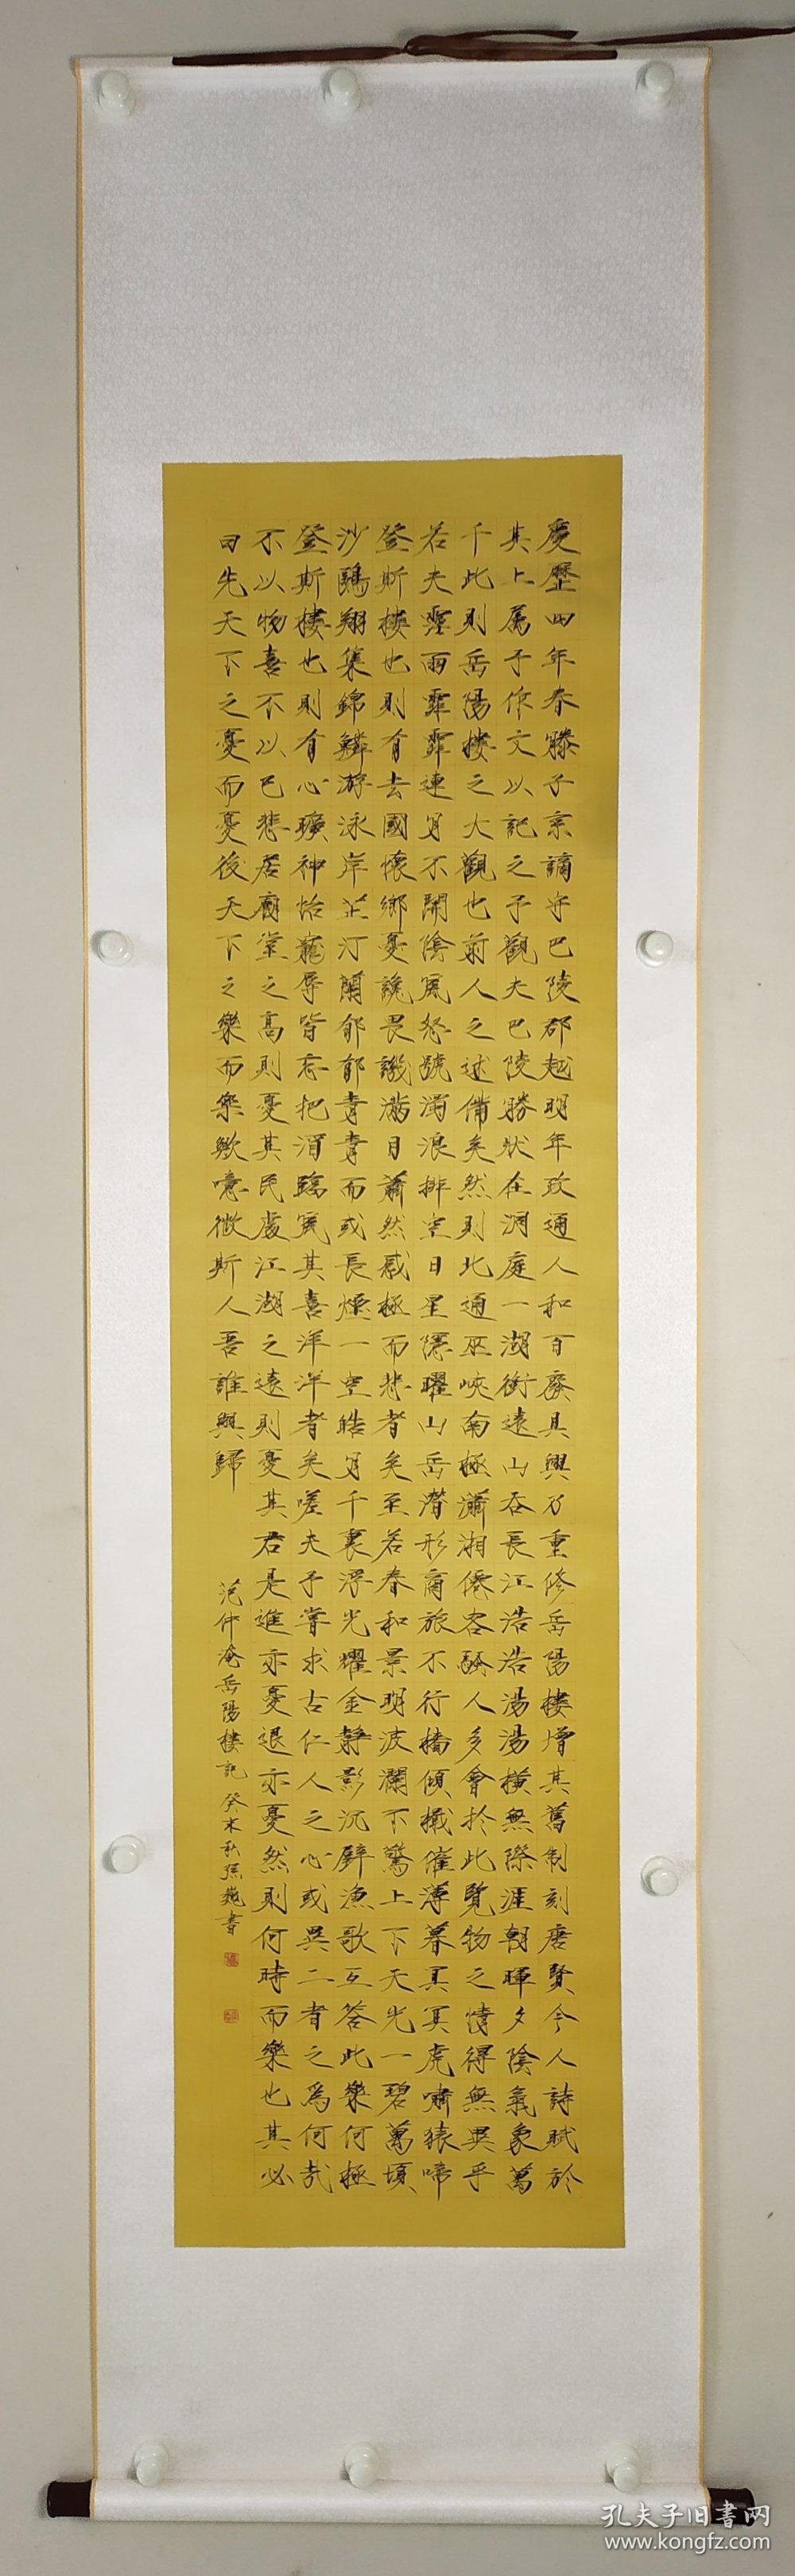 慶歷四年春滕子京謫守巴陵郡越明年政通人和百廢具興乃重修岳陽樓增其舊制刻唐賢今人詩賦於
其上屬予作文以記之予觀夫巴陵勝狀在洞庭一湖銜遠山吞長江浩浩湯湯橫無際涯朝暉夕陰氣象萬
千此則岳陽樓之大觀也前人之述備矣然則北通巫峽南極瀟湘僊客騷人多會於此覽物之情得無異乎
若夫霪雨霏霏連月不開陰風怒號濁浪排空日星隱曜山岳潛形商旅不行檣傾檝催薄暮冥冥虎嘯猿啼
登斯樓也則有去國懷鄉憂讒畏譏滿目蕭然感極而悲者矣至若春和景明波瀾不驚上下天光一碧萬頃
沙鷗翔集錦鱗游泳岸芷汀蘭郁郁青青而或長煙一空皓月千裏浮光耀金靜影沉璧漁歌互答此樂何極
登斯樓也則有心曠神怡寵辱皆忘把酒臨風其喜洋洋者矣嗟夫予嘗求古仁人之心或異二者之爲何哉
不以物喜不以己悲居廟堂之高則憂其民處江湖之遠則憂其君是進亦憂退亦憂然則何時而樂也其必
曰先天下之憂而憂後天下之樂而樂歟噫微斯人吾誰與歸
范仲淹岳陽樓記 癸未秋孫巍書
孔夫子旧書网
www.kongfz.com